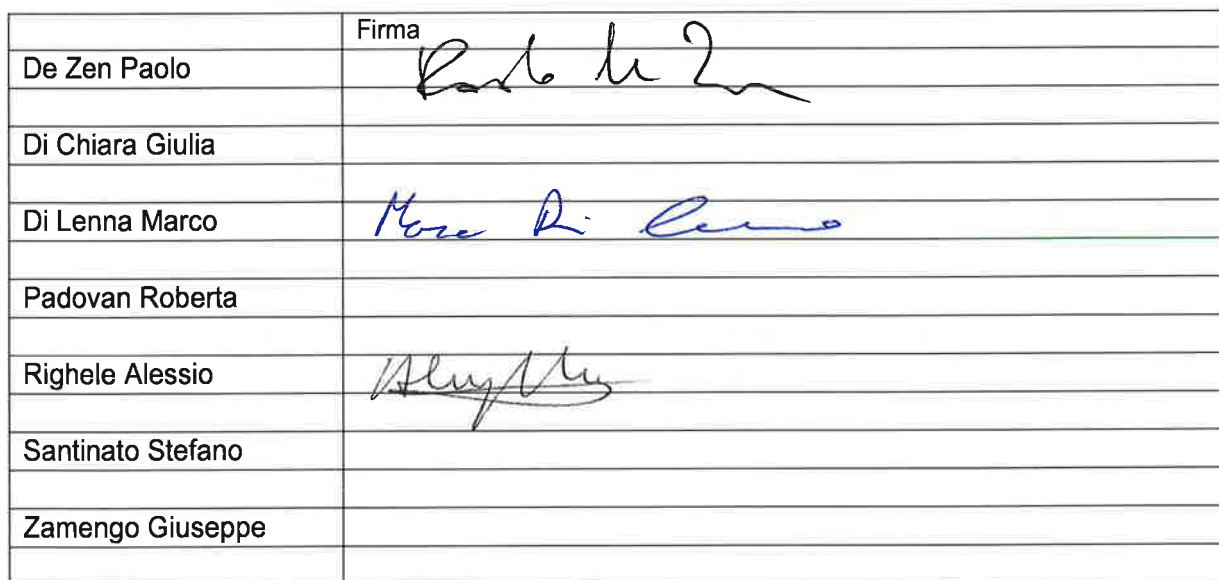 Firma
De Zen Paolo Paolo De Zen
Di Chiara Giulia
Di Lenna Marco Marco Di Lenna
Padovan Roberta
Righele Alessio
Santinato Stefano
Zamengo Giuseppe